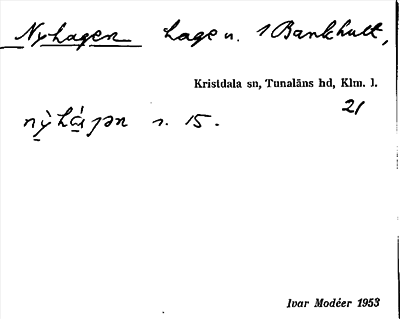 Nyhagen hage u. 1 Bankhult,
Kristdala sn, Tunaläns hd, Klm. l.
21
s. 15.
Ivar Modéer 1953